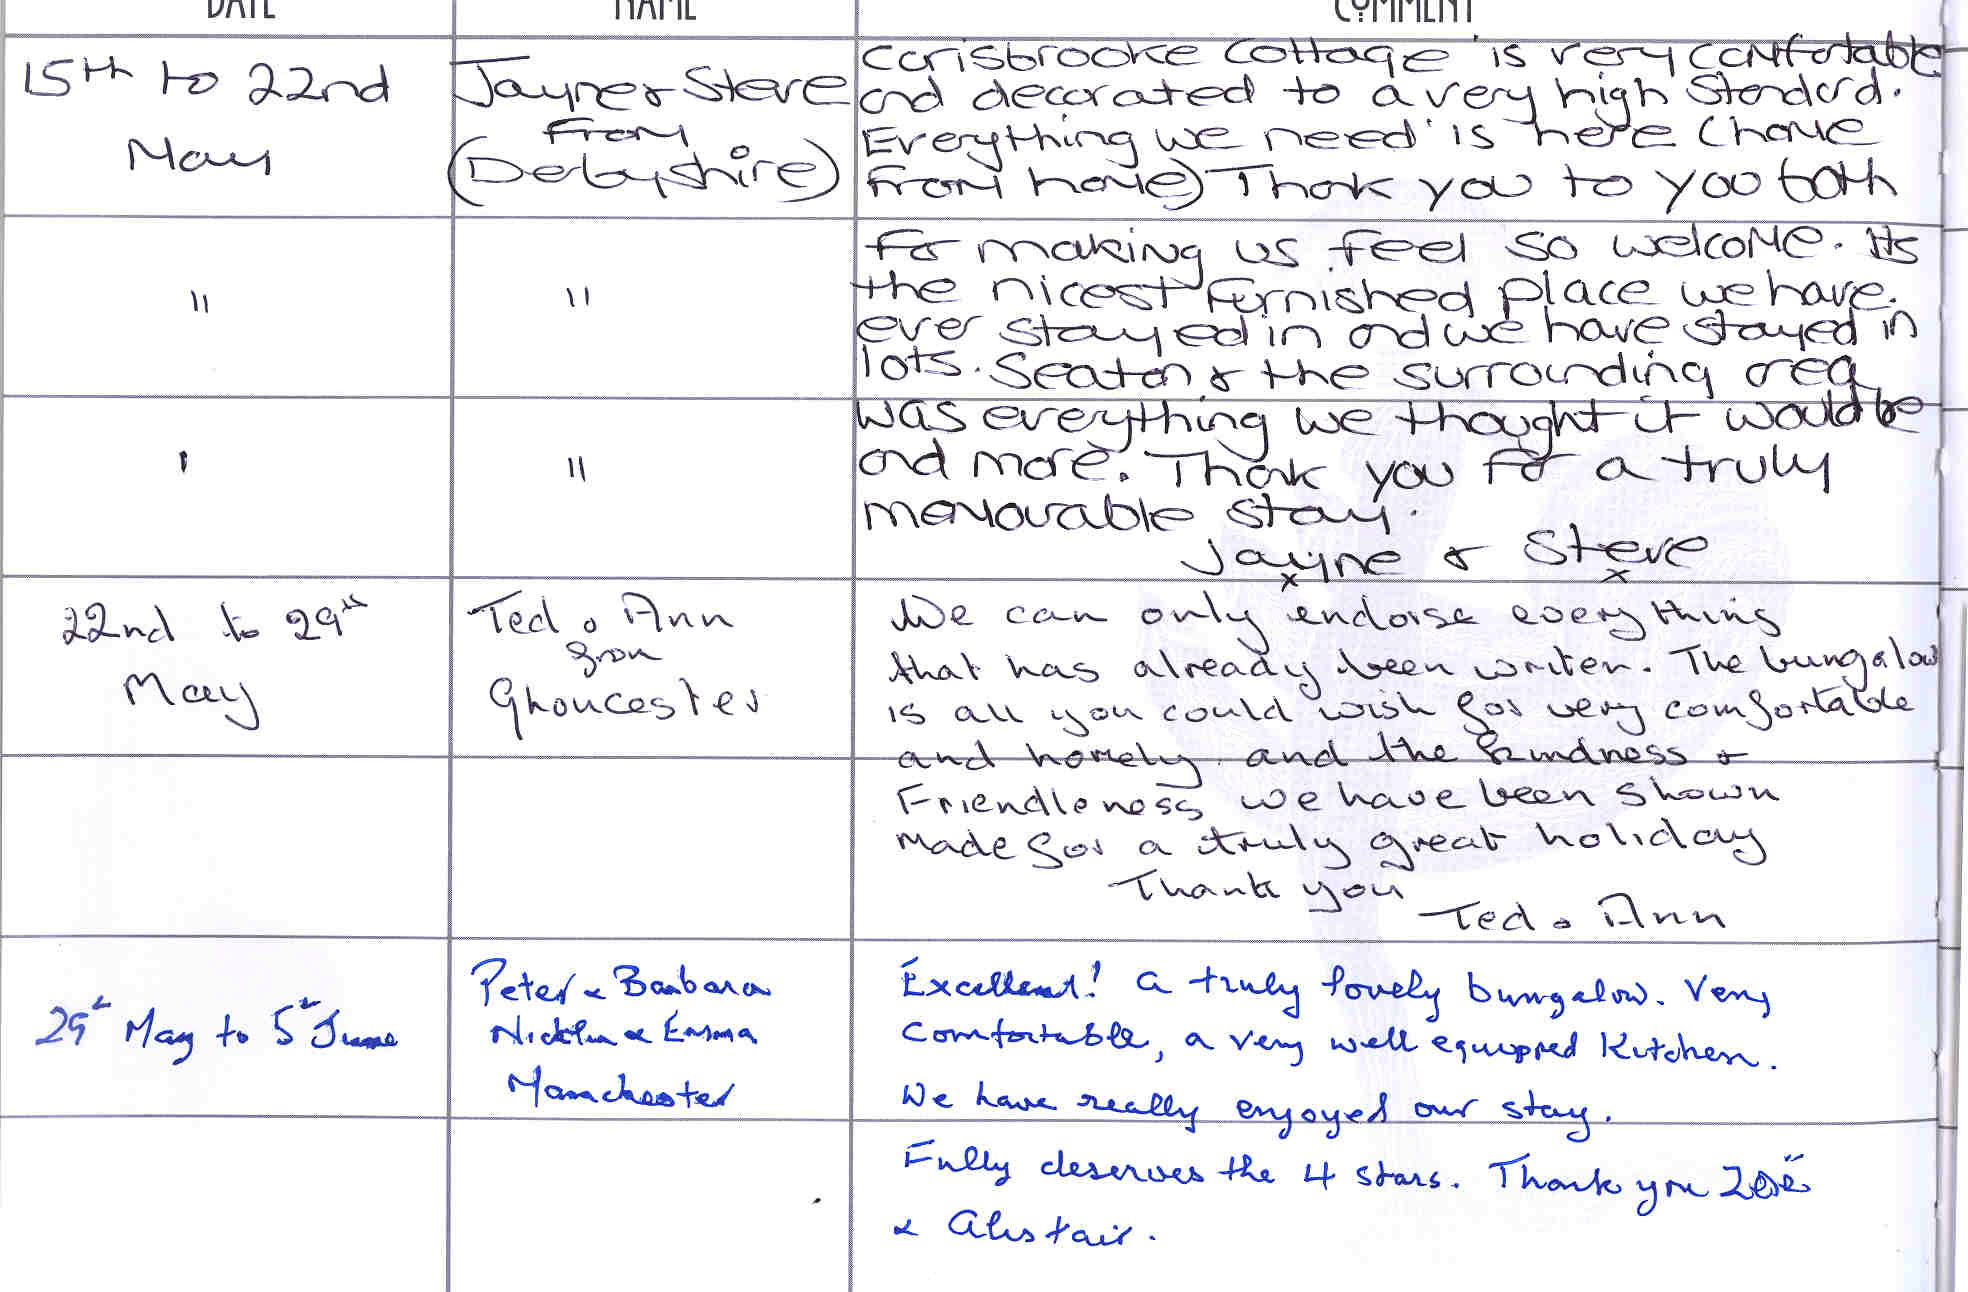 DATE NAME COMMENT
15th to 22nd
May
Jayne & Steve
from
(Derbyshire)
Carisbrooke Cottage is very comfortable
and decorated to a very high standard.
Everything we need is here (home
from home) Thank you to you both
" "
for making us feel so welcome. Its
the nicest furnished place we have
ever stayed in and we have stayed in
lots. Seaton & the surrounding area
' "
was everything we thought it would be
and more. Thank you for a truly
memourable stay.
Jayne & Steve
x x
22nd to 29th
May
Ted & Ann
from
Gloucester
We can only endorse everything
that has already been writen. The bungalow
is all you could wish for very comfortable
and homely and the kindness &
Friendleness we have been shown
made for a truly great holiday
Thank you
Ted & Ann
29th May to 5th June
Peter & Barbara
Nicklin & Emma
Manchester
Excellent! A truly lovely bungalow. Very
comfortable, a very well equipped kitchen.
We have really enjoyed our stay.
Fully deserves the 4 stars. Thank you Zoë
& Alistair.